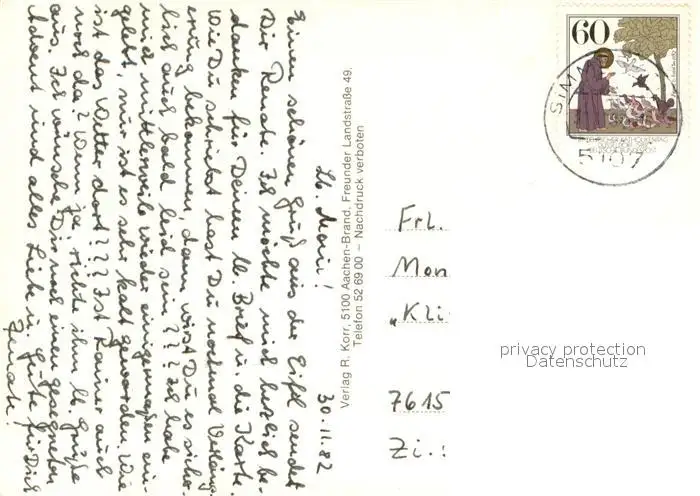 Lb. Moni!
30.11.82
Einen schönen Gruß aus der Eifel sendet
Dir Renate. Ich möchte mich herzlich be-
danken für Deinen lb. Brief u. die Karte.
Wie Du schriebst hast Du nochmal Verläng-
erung bekommen, dann wirst Du es sicher-
lich auch bald leid sein??? Ich habe
mich mittlerweile wieder einigermaßen ein-
gelebt, nur ist es sehr kalt geworden. Wie
ist das Wetter dort??? Ist Rainer auch
noch da? Wenn ja, richte ihm lb. Grüße
aus. Ich wünsche Dir noch einen gesegneten
Advent und alles Liebe u. Gute für Dich
Renate!
Verlag R. Korr, 5100 Aachen-Brand, Freunder Landstraße 49,
Telefon 52 69 00 – Nachdruck verboten
60
SIMM
5107
Frl.
Mon
„Kli
7615
Zi.:
privacy protection
Datenschutz